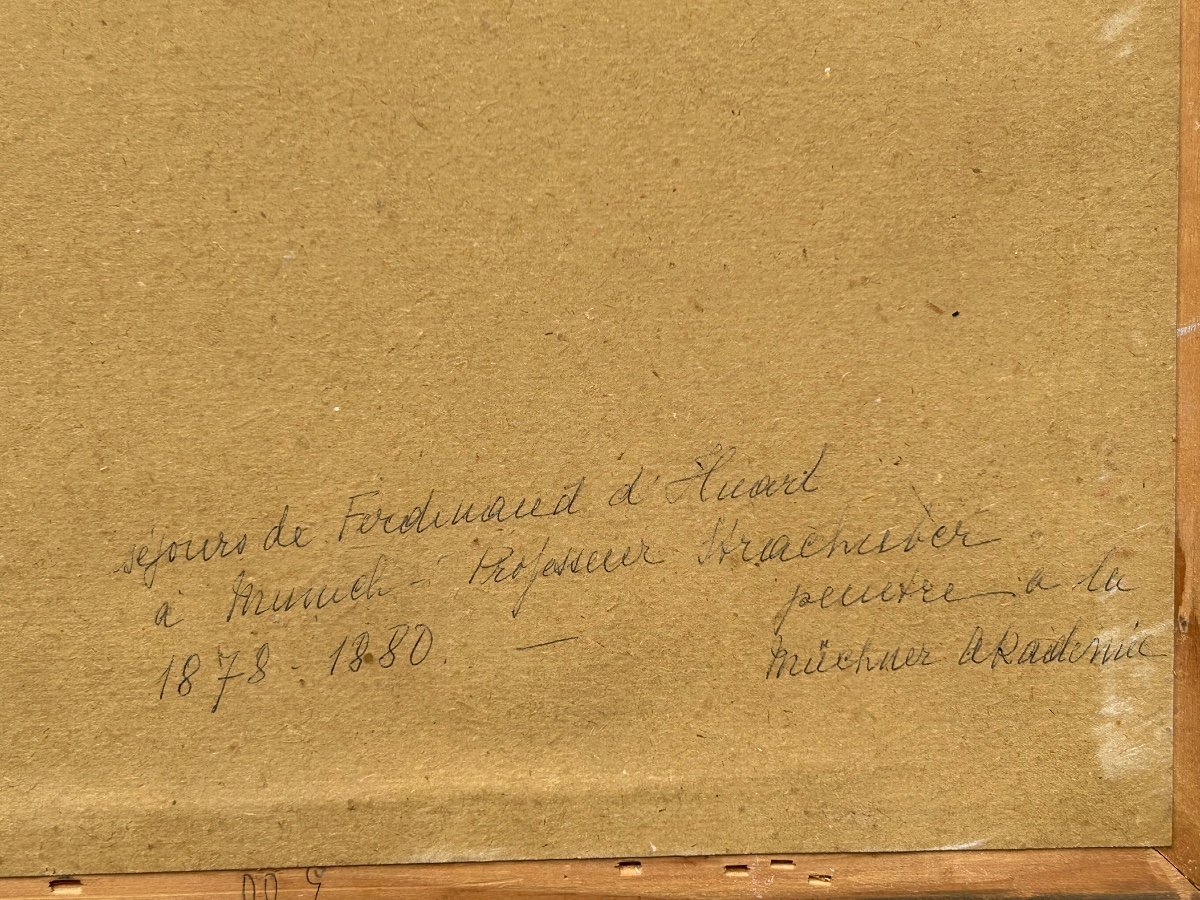 séjours de Ferdinand d'Huart
à Munich - Professeur Strachuber
peintre a la
1878 - 1880. —
Müchner Akademie
00 5